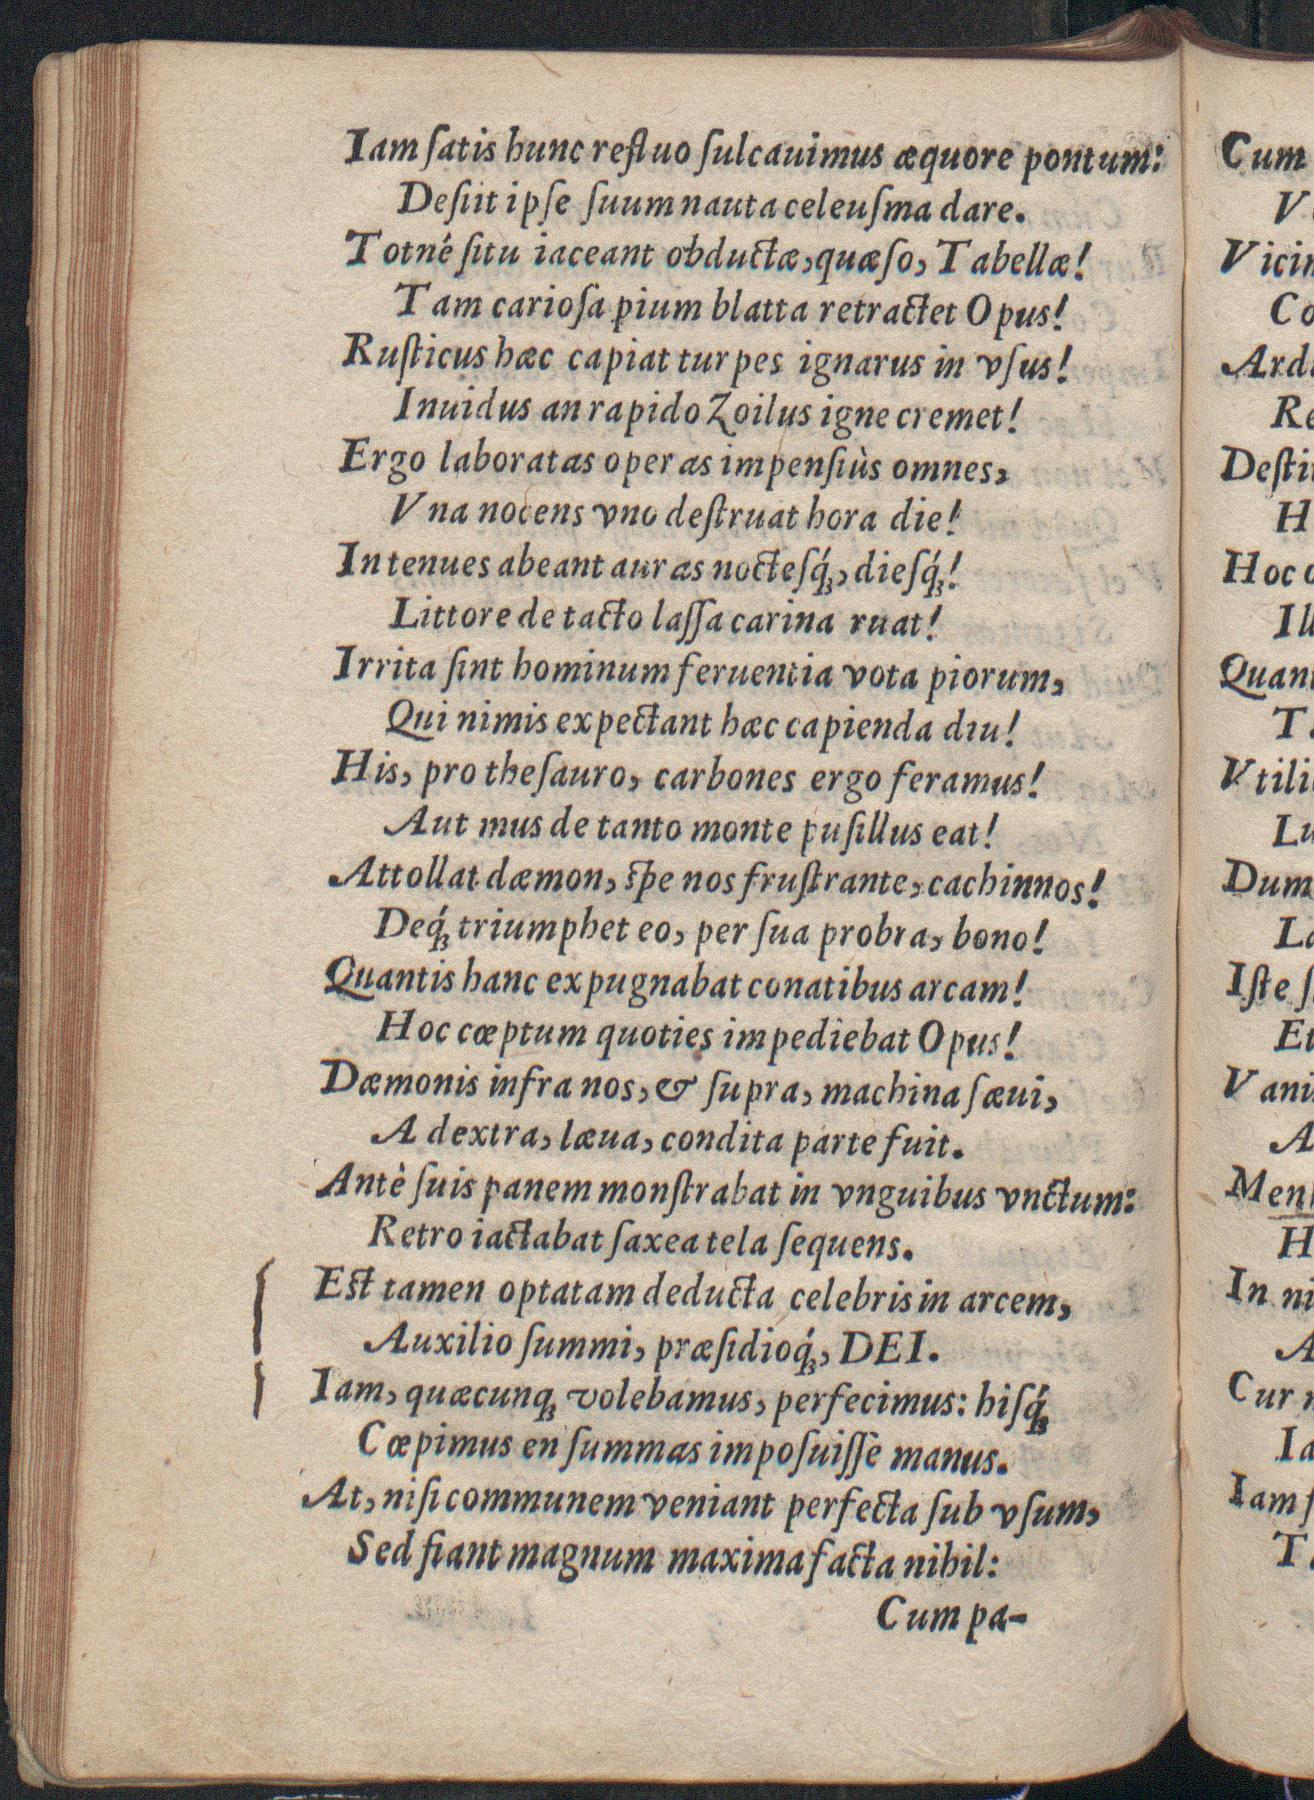 Iam ſatis hunc refluo ſulcauimus æquore pontum:
Deſiit ipſe ſuum nauta celeuſma dare.
Totné ſitu iaceant obductæ, quæſo, Tabellæ!
Tam carioſa pium blatta retractet Opus!
Ruſticus hæc capiat turpes ignarus in vſus!
Inuidus an rapido Zoilus igne cremet!
Ergo laboratas operas impenſiùs omnes,
Vna nocens vno deſtruat hora die!
In tenues abeant auras nocteſq́ꝫ, dieſq́ꝫ!
Littore de tacto laſſa carina ruat!
Irrita ſint hominum feruentia vota piorum,
Qui nimis expectant hæc capienda diu!
His, pro theſauro, carbones ergo feramus!
Aut mus de tanto monte puſillus eat!
Attollat dæmon, ſpe nos fruſtrante, cachinnos!
Deq́ꝫ triumphet eo, per ſua probra, bono!
Quantis hanc expugnabat conatibus arcam!
Hoc cœptum quoties impediebat Opus!
Dæmonis infra nos, & ſupra, machina ſæui,
A dextra, læua, condita parte fuit.
Antè ſuis panem monſtrabat in vnguibus vnctum:
Retro iactabat ſaxea tela ſequens.
Eſt tamen optatam deducta celebris in arcem,
Auxilio ſummi, præſidioq́ꝫ, DEI.
Iam, quæcunqꝫ volebamus, perfecimus: hiſq́ꝫ
Cœpimus en ſummas impoſuiſſè manus.
At, niſi communem veniant perfecta ſub vſum,
Sed fiant magnum maxima facta nihil:
Cum pa-
Cum
Co
Re
H
Hoc